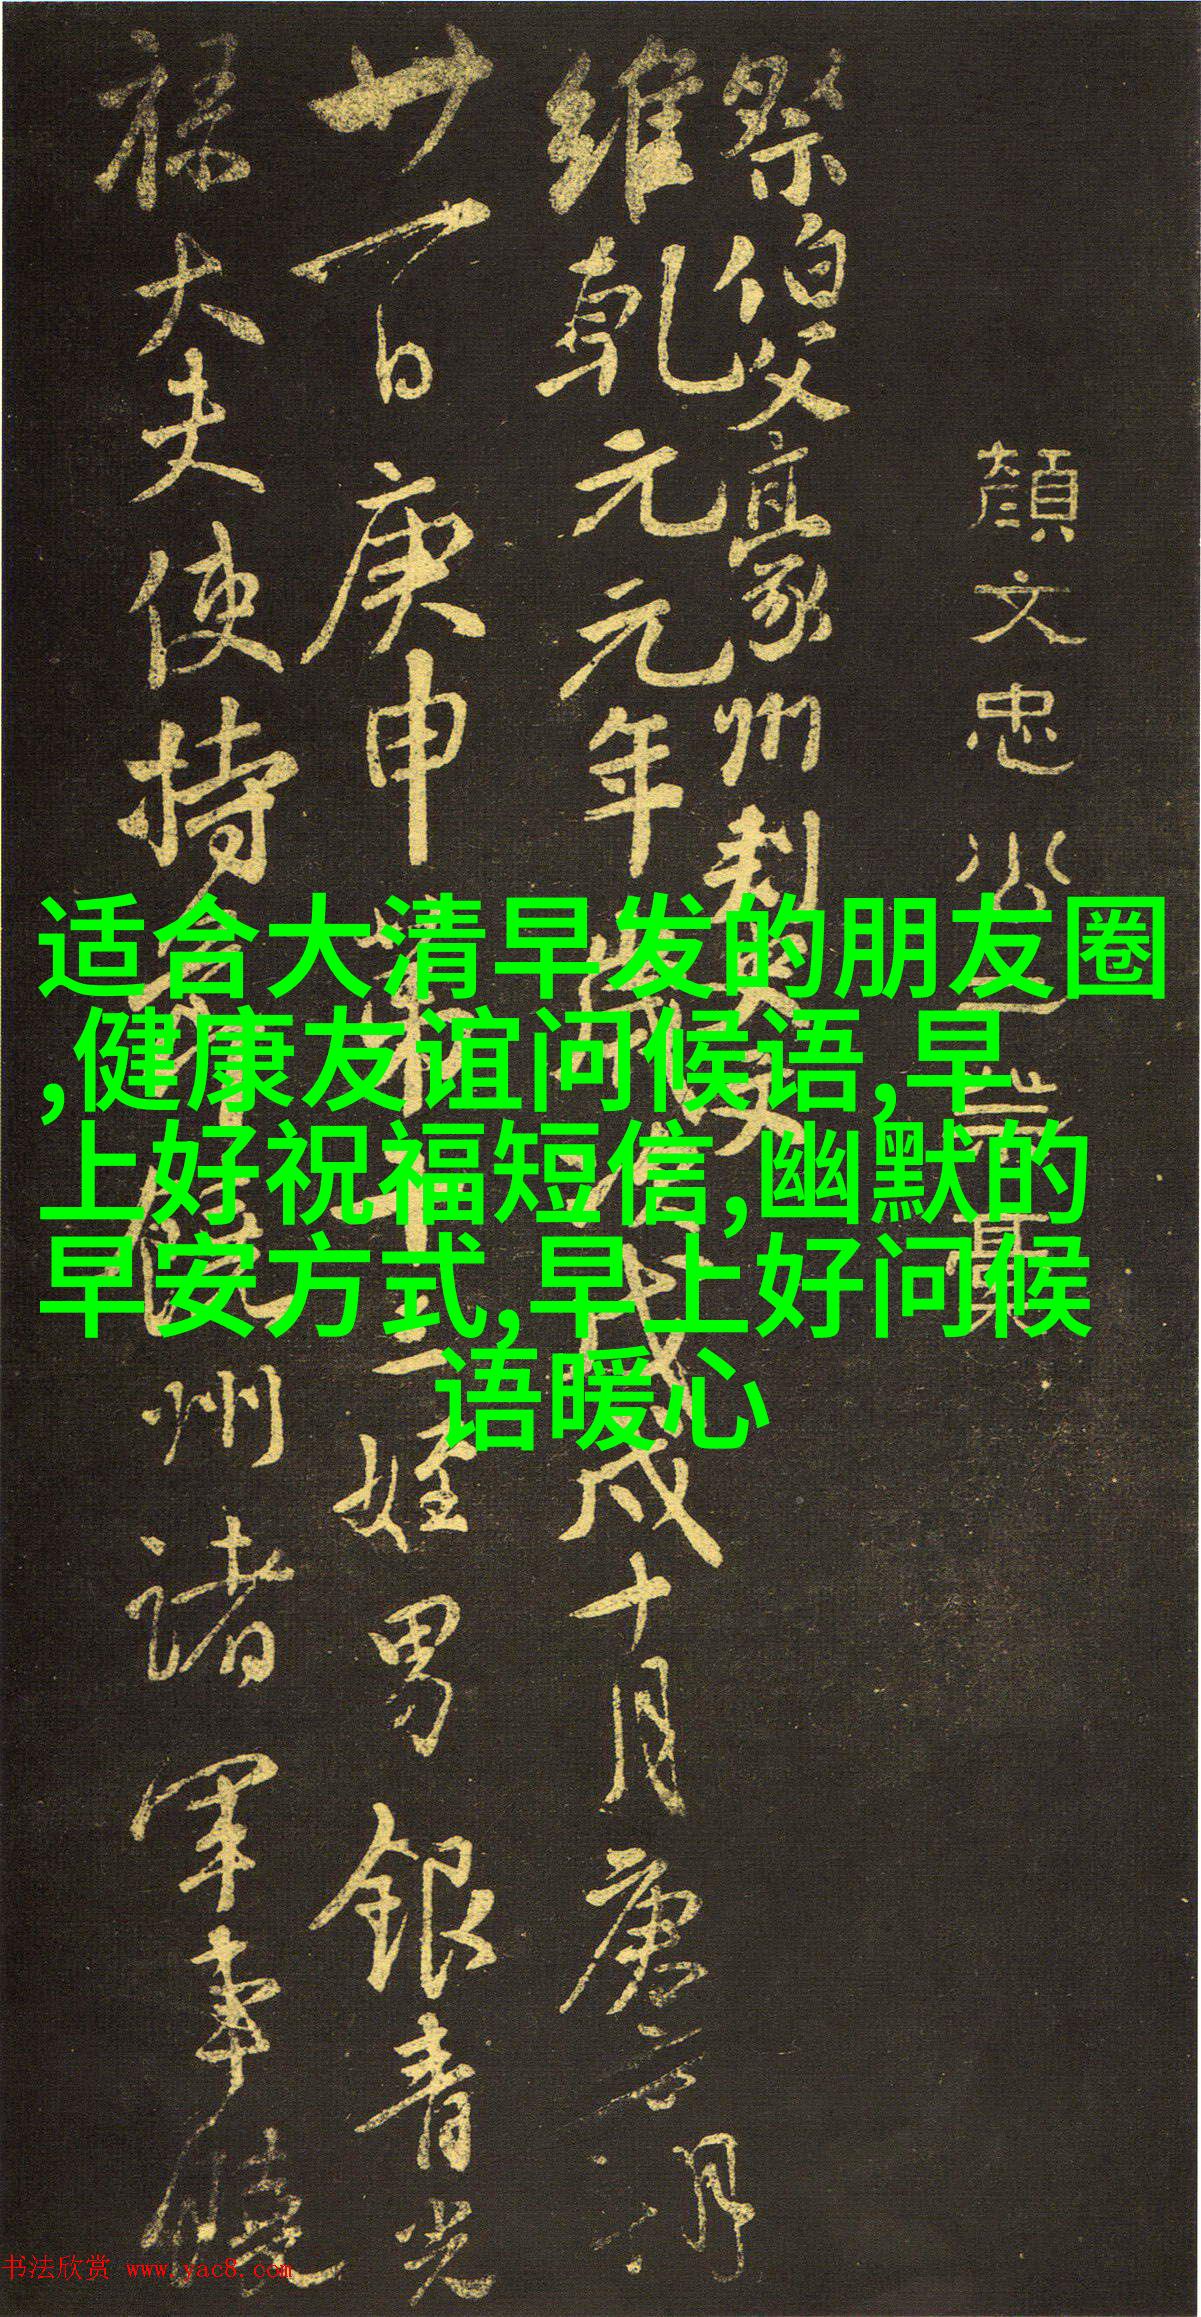 顏文忠公三此二藁
祭伯父豪州刺史文
維乾元元年歲次戊戌十月庚寅朔
廿一日庚申第十三姪男銀青光
祿大夫使持節饒州諸軍事饒
适合大清早发的朋友圈
,健康友谊问候语,早
上好祝福短信,幽默的
早安方式,早上好问候
语暖心
书法欣赏 www.yac8.com